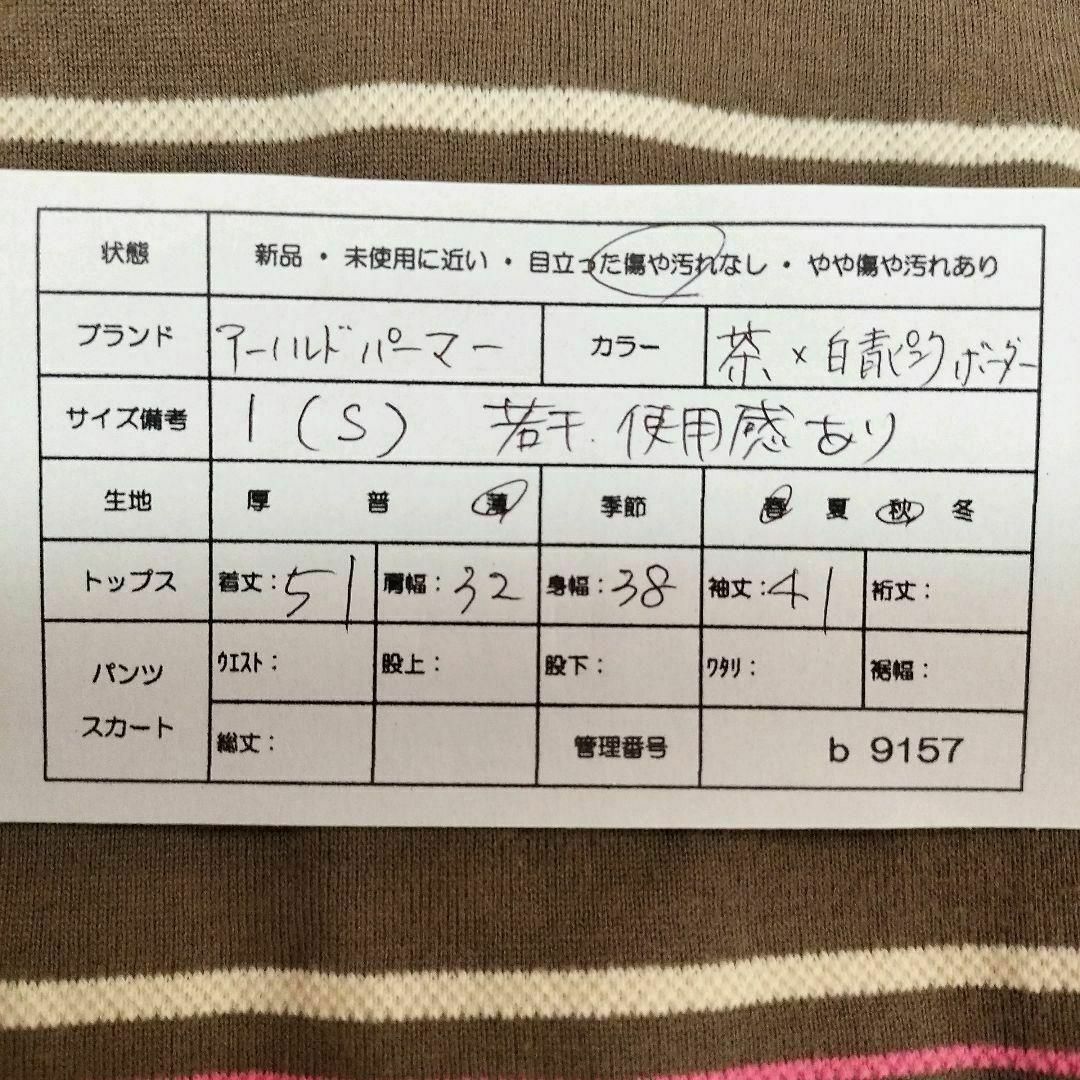 状態 新品・未使用に近い・目立った傷や汚れなし・やや傷や汚れあり
ブランド アーノルドパーマー カラー 茶×白青ピンクボーダー
サイズ備考 1(S) 若干使用感あり
生地 厚 普 薄 季節 春 夏 秋 冬
トップス 着丈:51 肩幅:32 身幅:38 袖丈:41 裄丈:
パンツ ウエスト: 股上: 股下: ワタリ: 裾幅:
スカート 総丈: 管理番号 b 9157